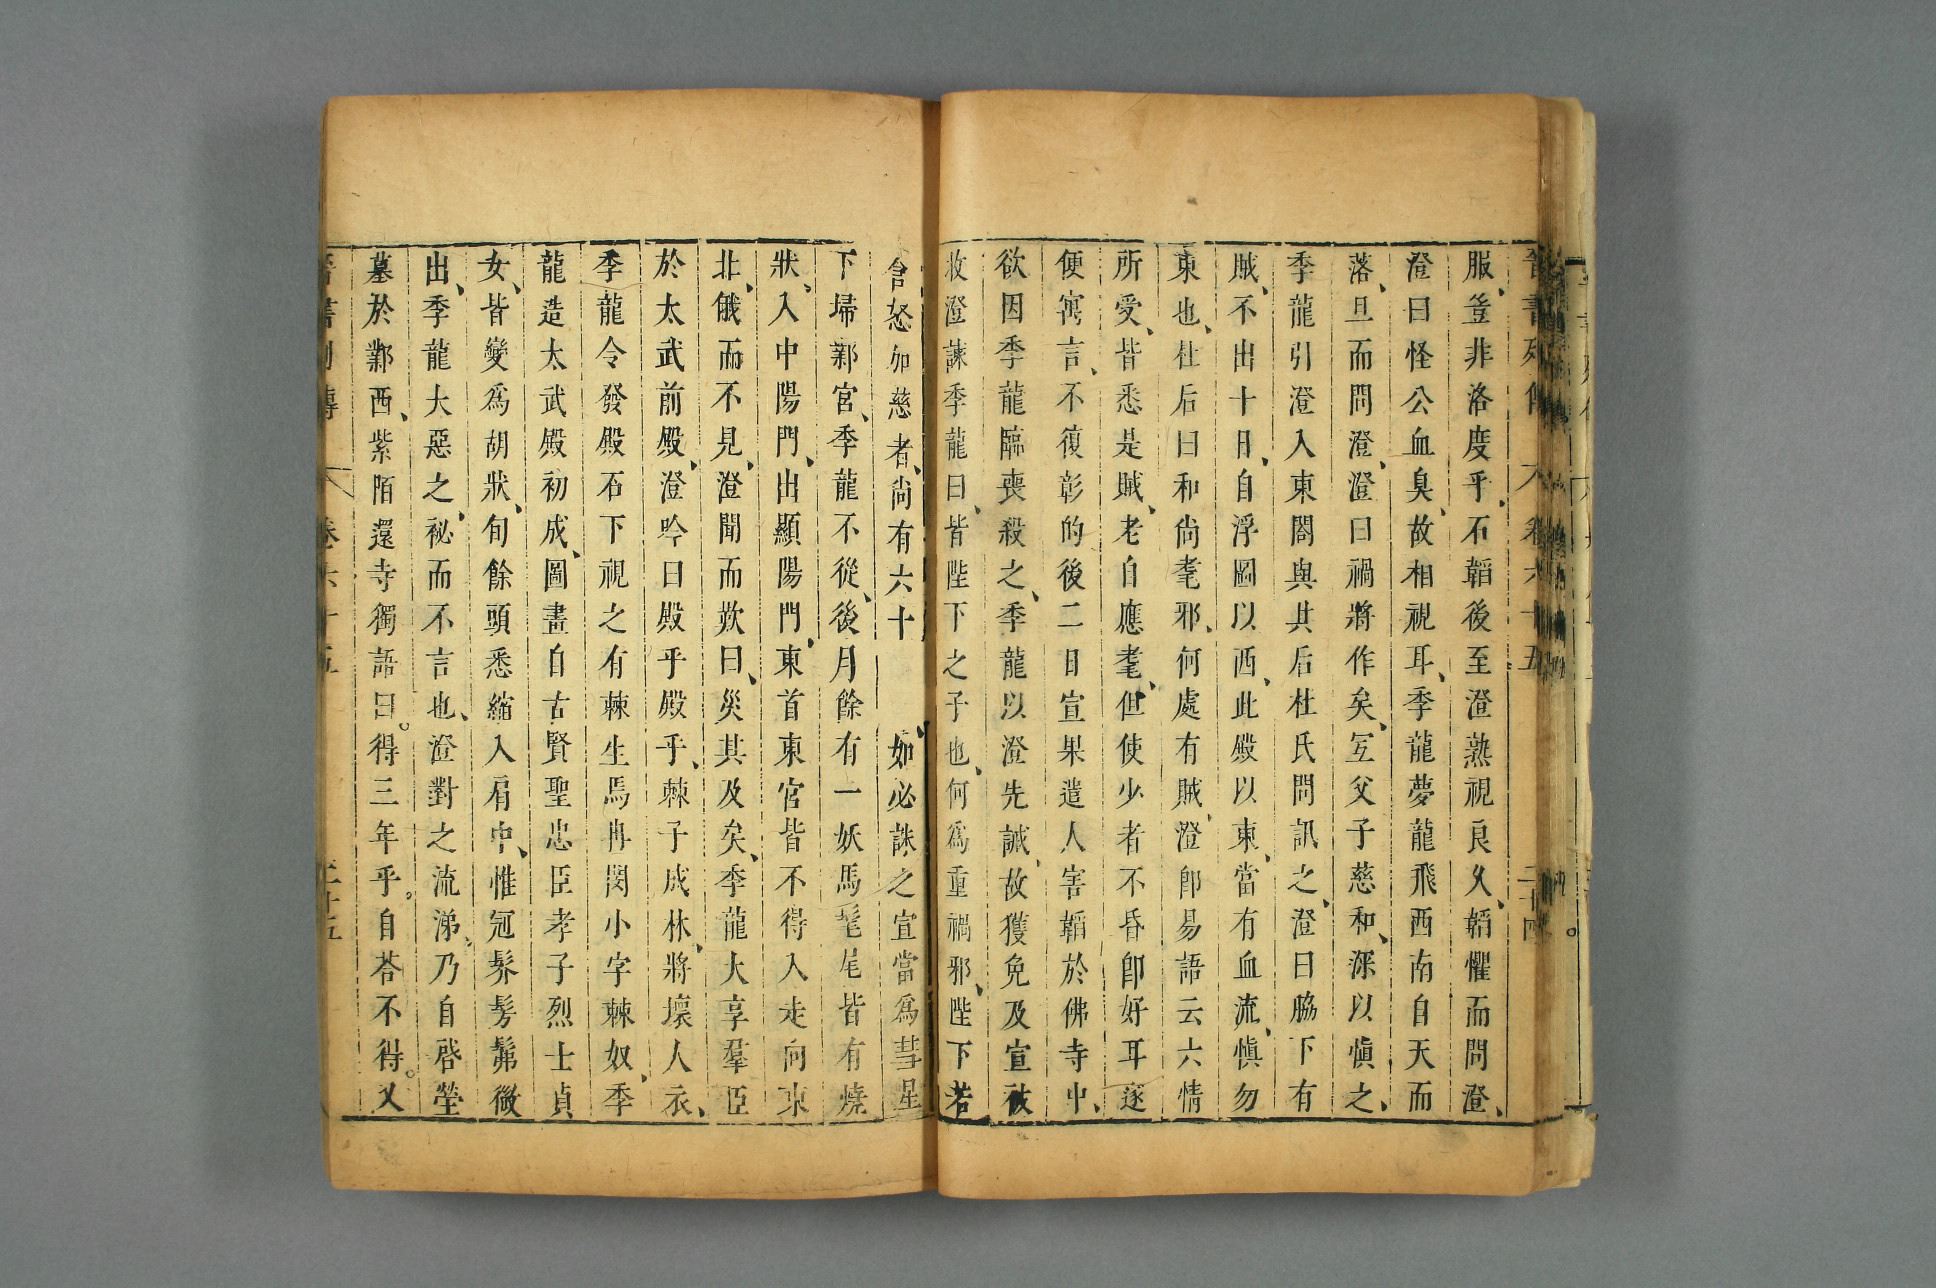 晉書列傳 卷六十五 二十四
服、豈非洛度乎、石韜後至澄熟視良久、韜懼而問澄、
澄曰怪公血臭、故相視耳、季龍夢龍飛西南自天而
落、旦而問澄、澄曰禍將作矣、冝父子慈和、深以愼之、
季龍引澄入東閤與其后杜氏問訊之、澄曰脇下有
賊、不出十日、自浮圖以西、此殿以東、當有血流、愼勿
東也、杜后曰和尚耄邪、何處有賊、澄卽易語云六情
所受、皆悉是賊、老自應耄、但使少者不昏卽好耳遂
便寓言、不復彰的後二日宣果遣人害韜於佛寺中、
欲因季龍臨喪殺之、季龍以澄先誡、故獲免及宣被
收澄諫季龍曰、皆陛下之子也、何爲重禍邪、陛下若
含怒加慈者、尚有六十 如必誅之宣當爲彗星
下埽鄴宮、季龍不從、後月餘有一妖馬髦尾皆有燒
狀、入中陽門、出顯陽門、東首東宮皆不得入走向東
北、俄而不見、澄聞而歎曰、災其及矣、季龍大享羣臣
於太武前殿、澄吟曰殿乎殿乎、棘子成林、將壞人衣、
季龍令發殿石下視之有棘生焉冉閔小字棘奴、季
龍造太武殿初成、圖畫自古賢聖忠臣孝子烈士貞
女、皆變爲胡狀、旬餘頭悉縮入肩中、惟冠䯰髣髴微
出、季龍大惡之、祕而不言也、澄對之流涕、乃自啓塋
墓於鄴西、紫陌還寺獨語曰。得三年乎。自荅不得。又
晉書列傳 卷六十五 二十五